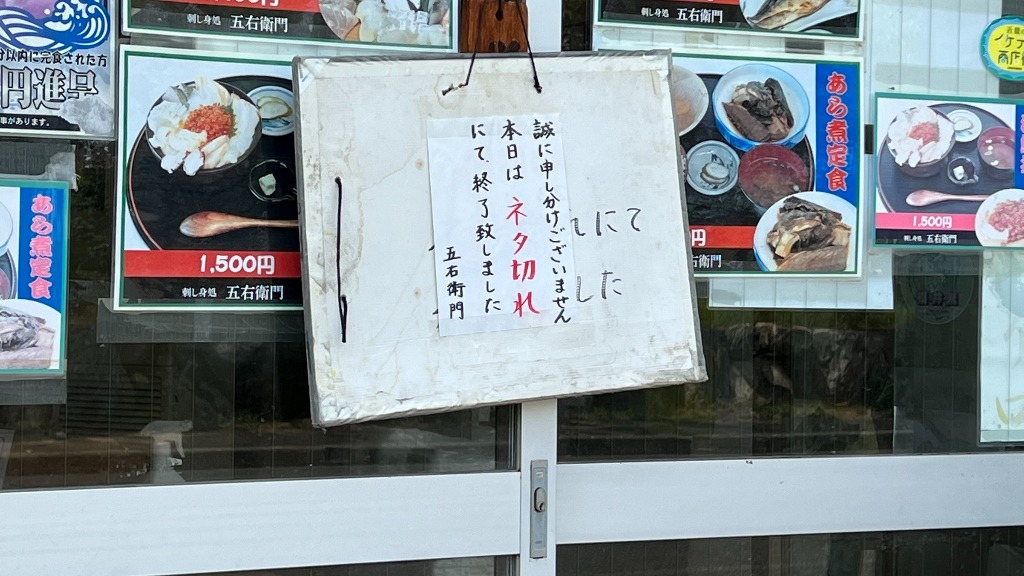 刺し身処 五右衛門
刺し身処 五右衛門
分以内に完食された方
円進呈
事があります。
誠に申し分けございません
本日は ネタ切れ
にて、終了致しました
五右衛門
れにて
した
1,500円
刺し身処 五右衛門
あら煮定食
円
衛門
あら煮定食
1,500円
刺し身処 五右衛門